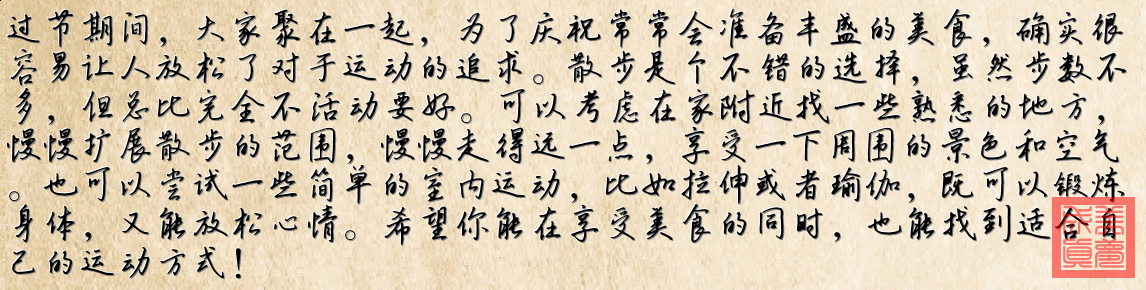 过节期间，大家聚在一起，为了庆祝常常会准备丰盛的美食，确实很
容易让人放松了对于运动的追求。散步是个不错的选择，虽然步数不
多，但总比完全不活动要好。可以考虑在家附近找一些熟悉的地方，
慢慢扩展散步的范围，慢慢走得远一点，享受一下周围的景色和空气
。也可以尝试一些简单的室内运动，比如拉伸或者瑜伽，既可以锻炼
身体，又能放松心情。希望你能在享受美食的同时，也能找到适合自
己的运动方式！